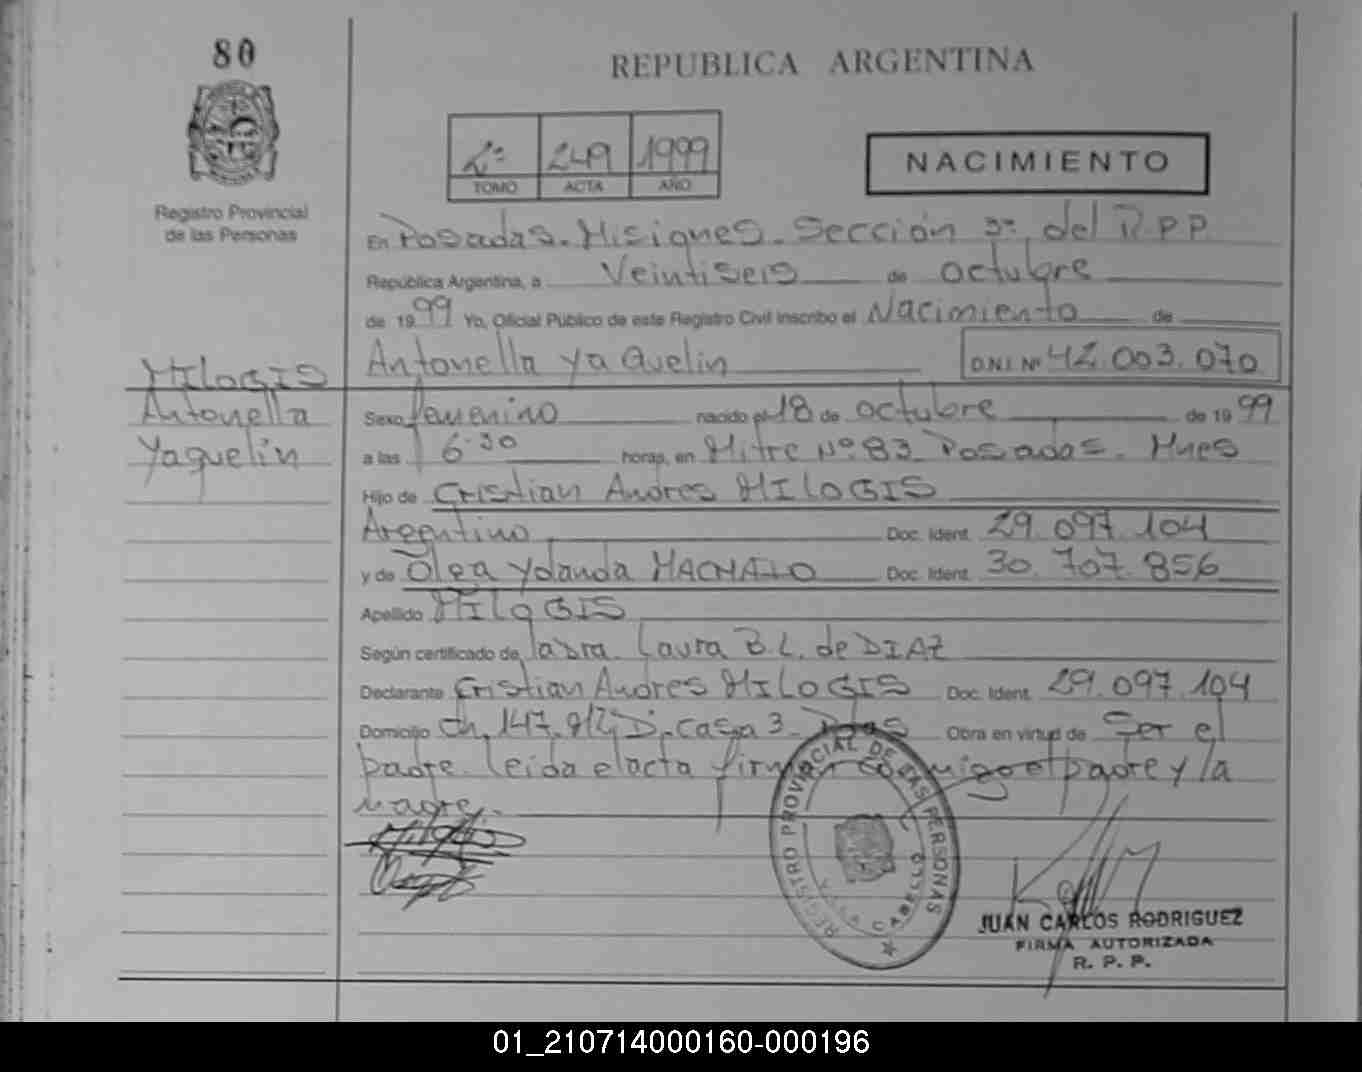 80
REPUBLICA ARGENTINA
2º 249 1999
TOMO ACTA AÑO
NACIMIENTO
Registro Provincial
de las Personas
En Posadas. Misiones. Sección 3ª del R.P.P.
República Argentina, a Veintiseis de octubre
de 1999 Yo, Oficial Público de este Registro Civil inscribo el Nacimiento de
Antonella Yaquelin D.N.I. Nº 42.003.070
MILOGIS
Antonella
Yaquelin
Sexo femenino nacido el 18 de octubre de 1999
a las 6.30 horas, en Mitre Nº 83 Posadas. Mnes
Hijo de Cristian Andres MILOGIS
Argentino Doc. Ident. 29.097.104
y de Olga Yolanda Doc. Ident. 30.707.856
Apellido MILOGIS
Según certificado de la Dra. Laura B.L. de DIAZ
Declarante Cristian Andres MILOGIS Doc. Ident. 29.097.104
Domicilio Ch. 147. Casa 3. Pdas Obra en virtud de Ser el
padre. Leida el acta firman conmigo el padre y la
madre.
REGISTRO PROVINCIAL DE LAS PERSONAS
VILLA CABELLO
JUAN CARLOS RODRIGUEZ
FIRMA AUTORIZADA
R. P. P.
01_210714000160-000196